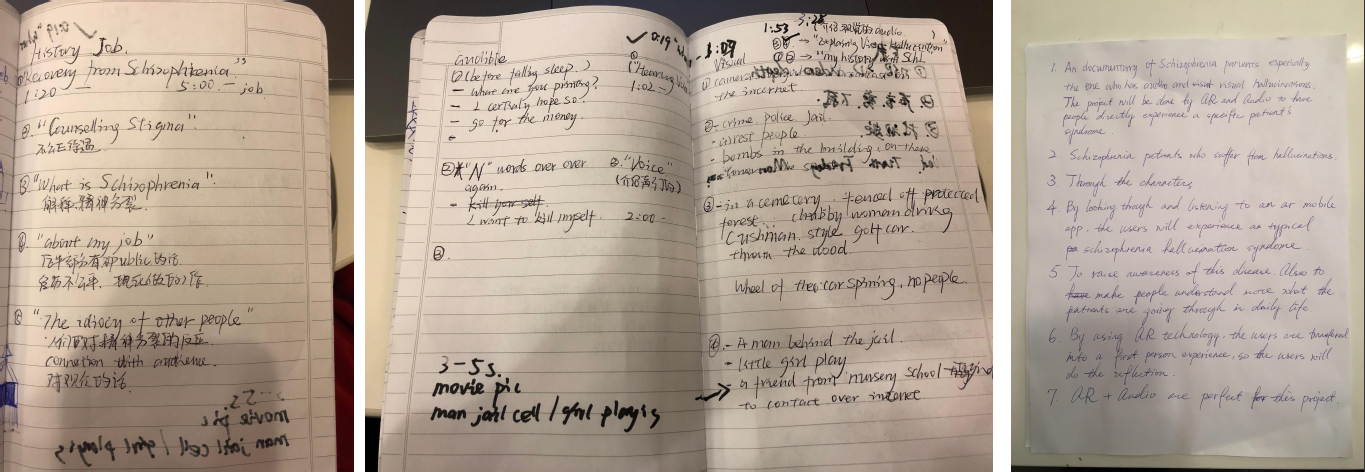 History Job.
Recovery from Schizophrenia."
1:20 — 5:00. — job
②. "Counselling Stigma".
不公正待遇.
③ "What is Schizophrenia".
解释精神分裂.
④. "about my job"
后半部分有部public的话
⑤ "The idiocy of other people"
人们对精神分裂的反应.
connection with audience.
对观众的话.
audible
①(before falling sleep.)
— what are you printing?
— I certainly hope so.
— go for the money.
②* "N" words over over
again.
- kill your self
I want to kill myself.
③.
✓ 0:19
("Hearing
1:02 —
②. "Voice"
2:00 —
3-5s.
movie pic
man jail cell / girl playing
3:09
1:53
3:28
Visual
→ "Explaining Visual Hallucination"
→ "my history with Schi
① camera
- the internet
②- crime. police jail.
- arrest people.
- bombs in the building, on there
③ - in a cemetery fenced off protected
forest. chubby woman driving
Cushman style golf car.
through the wood
Wheel of the car spining, no people.
④.- A man behind the jail.
- little girl play
→ a friend from nursery school
to contact over internet
1. An documentary of Schizophrenia patients especially
the one who has audio and visual hallucinations.
The project will be done by AR and Audio to have
people directly experience a specific patient's
syndrome.
2. Schizophrenia patients who suffer from hallucinations.
3. Through the characters
4. By looking though and listening to an ar mobile
app, the users will experience an typical
schizophrenia hallucination syndrome.
5. To raise awareness of this disease. Also to
have make people understand more what the
patients are going through in daily life
6. By using AR technology, the users are transferred
into a first person experience, so the users will
do the reflection.
7. AR + Audio are perfect for this project.